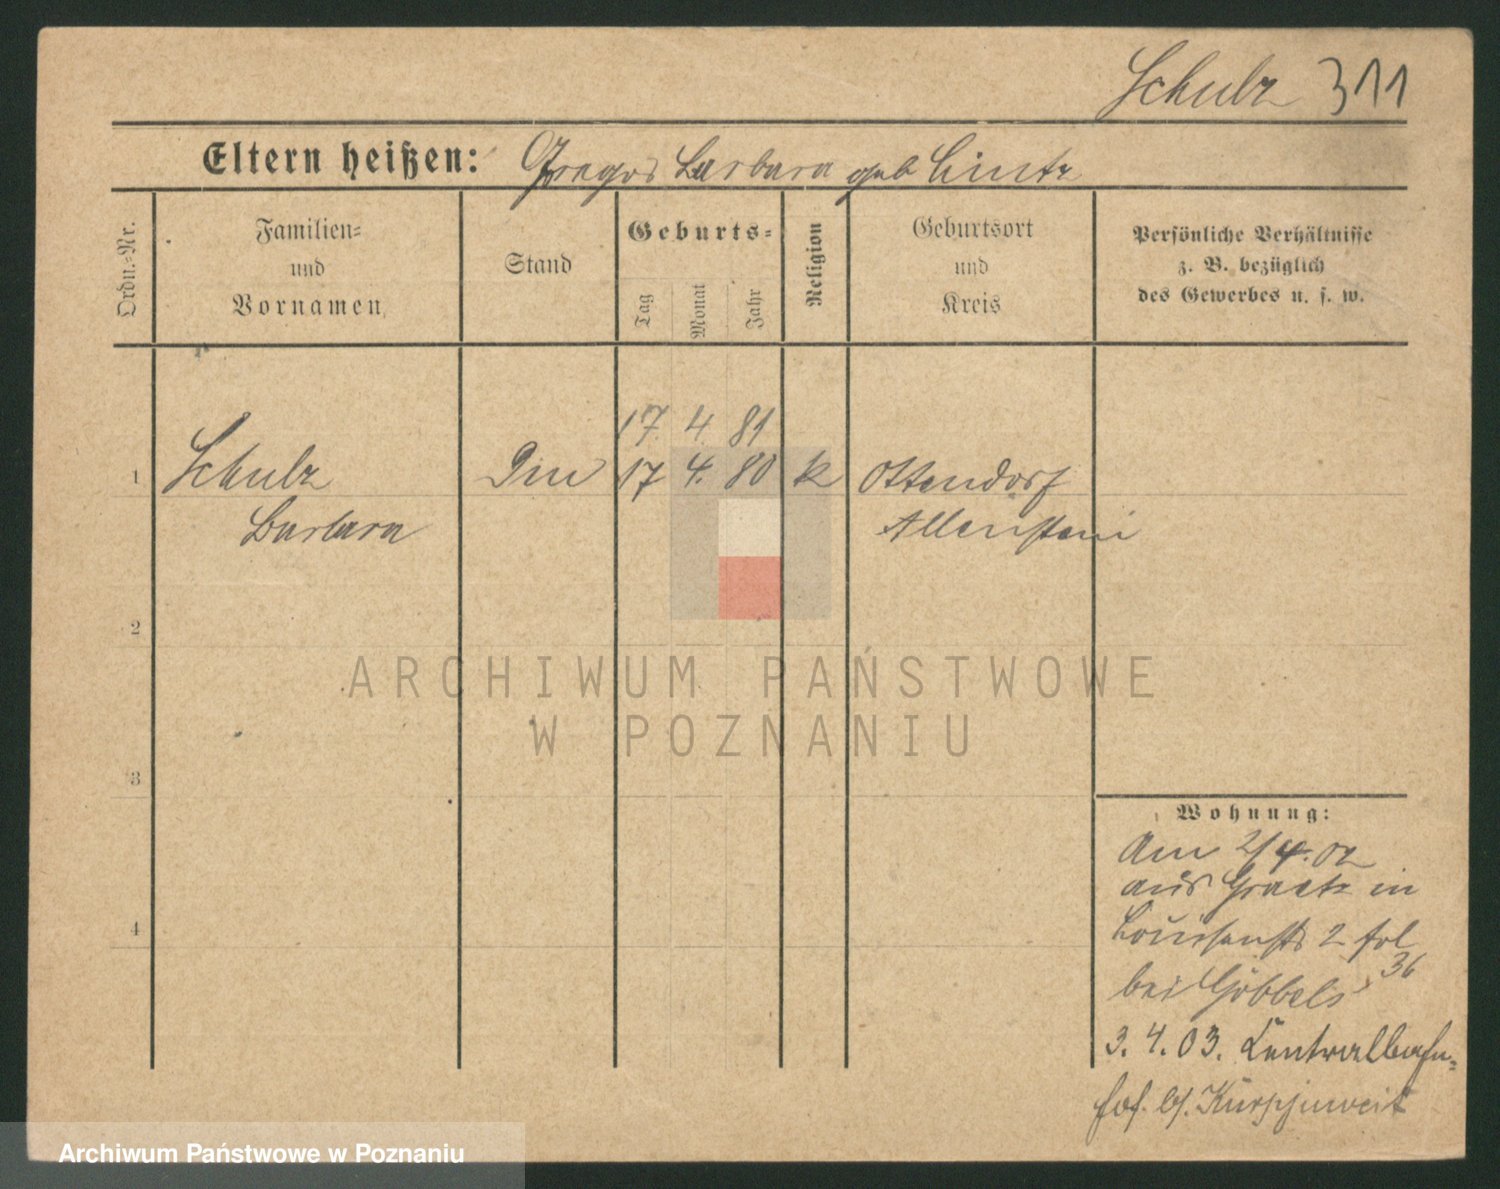 Schulz 311
Eltern heißen: Gregor Barbara geb Lintz
Ordn.=Nr.
Familien=
und
Vornamen
Stand
Geburts=
Tag
Monat
Jahr
Religion
Geburtsort
und
Kreis
Persönliche Verhältnisse
z. B. bezüglich
des Gewerbes u. s. w.
17. 4. 81
1 Schulz 17 4. 80 k Ottendorf
Barbara Allenstein
2
3
4
Wohnung:
Am 2/4. 02
aus Graetz in
Louisenstr 2 fol
36
bei Göbbels
3. 4. 03. Centralbahn=
hof. b/.
ARCHIWUM PAŃSTWOWE
W POZNANIU
Archiwum Państwowe w Poznaniu